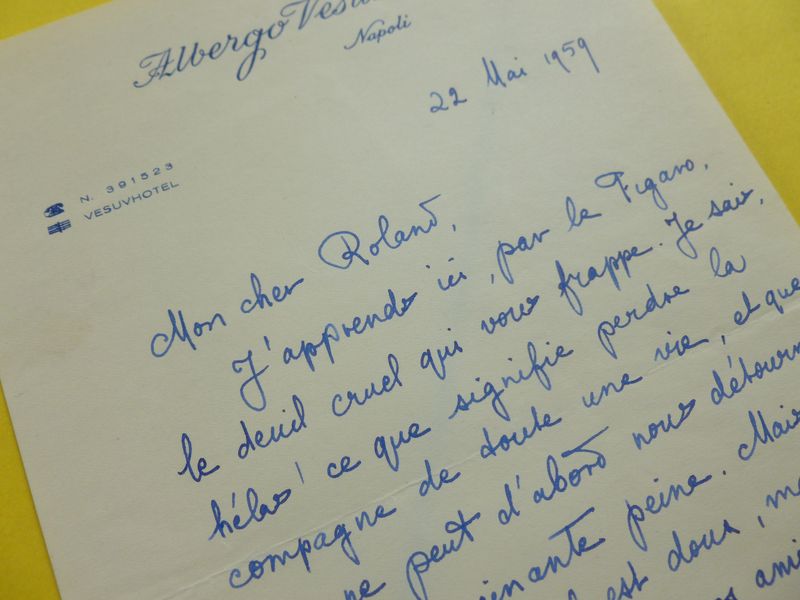 Albergo
Napoli
22 Mai 1959
N. 391523
VESUVHOTEL
Mon cher Roland,
J'apprends ici, par le Figaro,
le deuil cruel qui vous frappe. Je sais,
hélas! ce que signifie perdre la
compagne de toute une vie, et que
ne peut d'abord nous
peine. Mais
est doux,